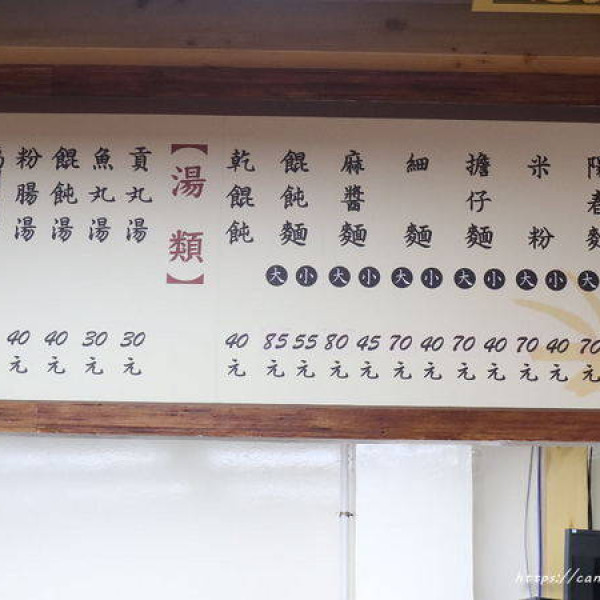 陽春麵 大 70元
米粉 小 40元 大 70元
擔仔麵 小 40元 大 70元
細麵 小 40元 大 70元
麻醬麵 小 45元 大 80元
餛飩麵 小 55元 大 85元
乾餛飩 40元
【湯類】
貢丸湯 30元
魚丸湯 30元
餛飩湯 40元
粉腸湯 40元
https://can